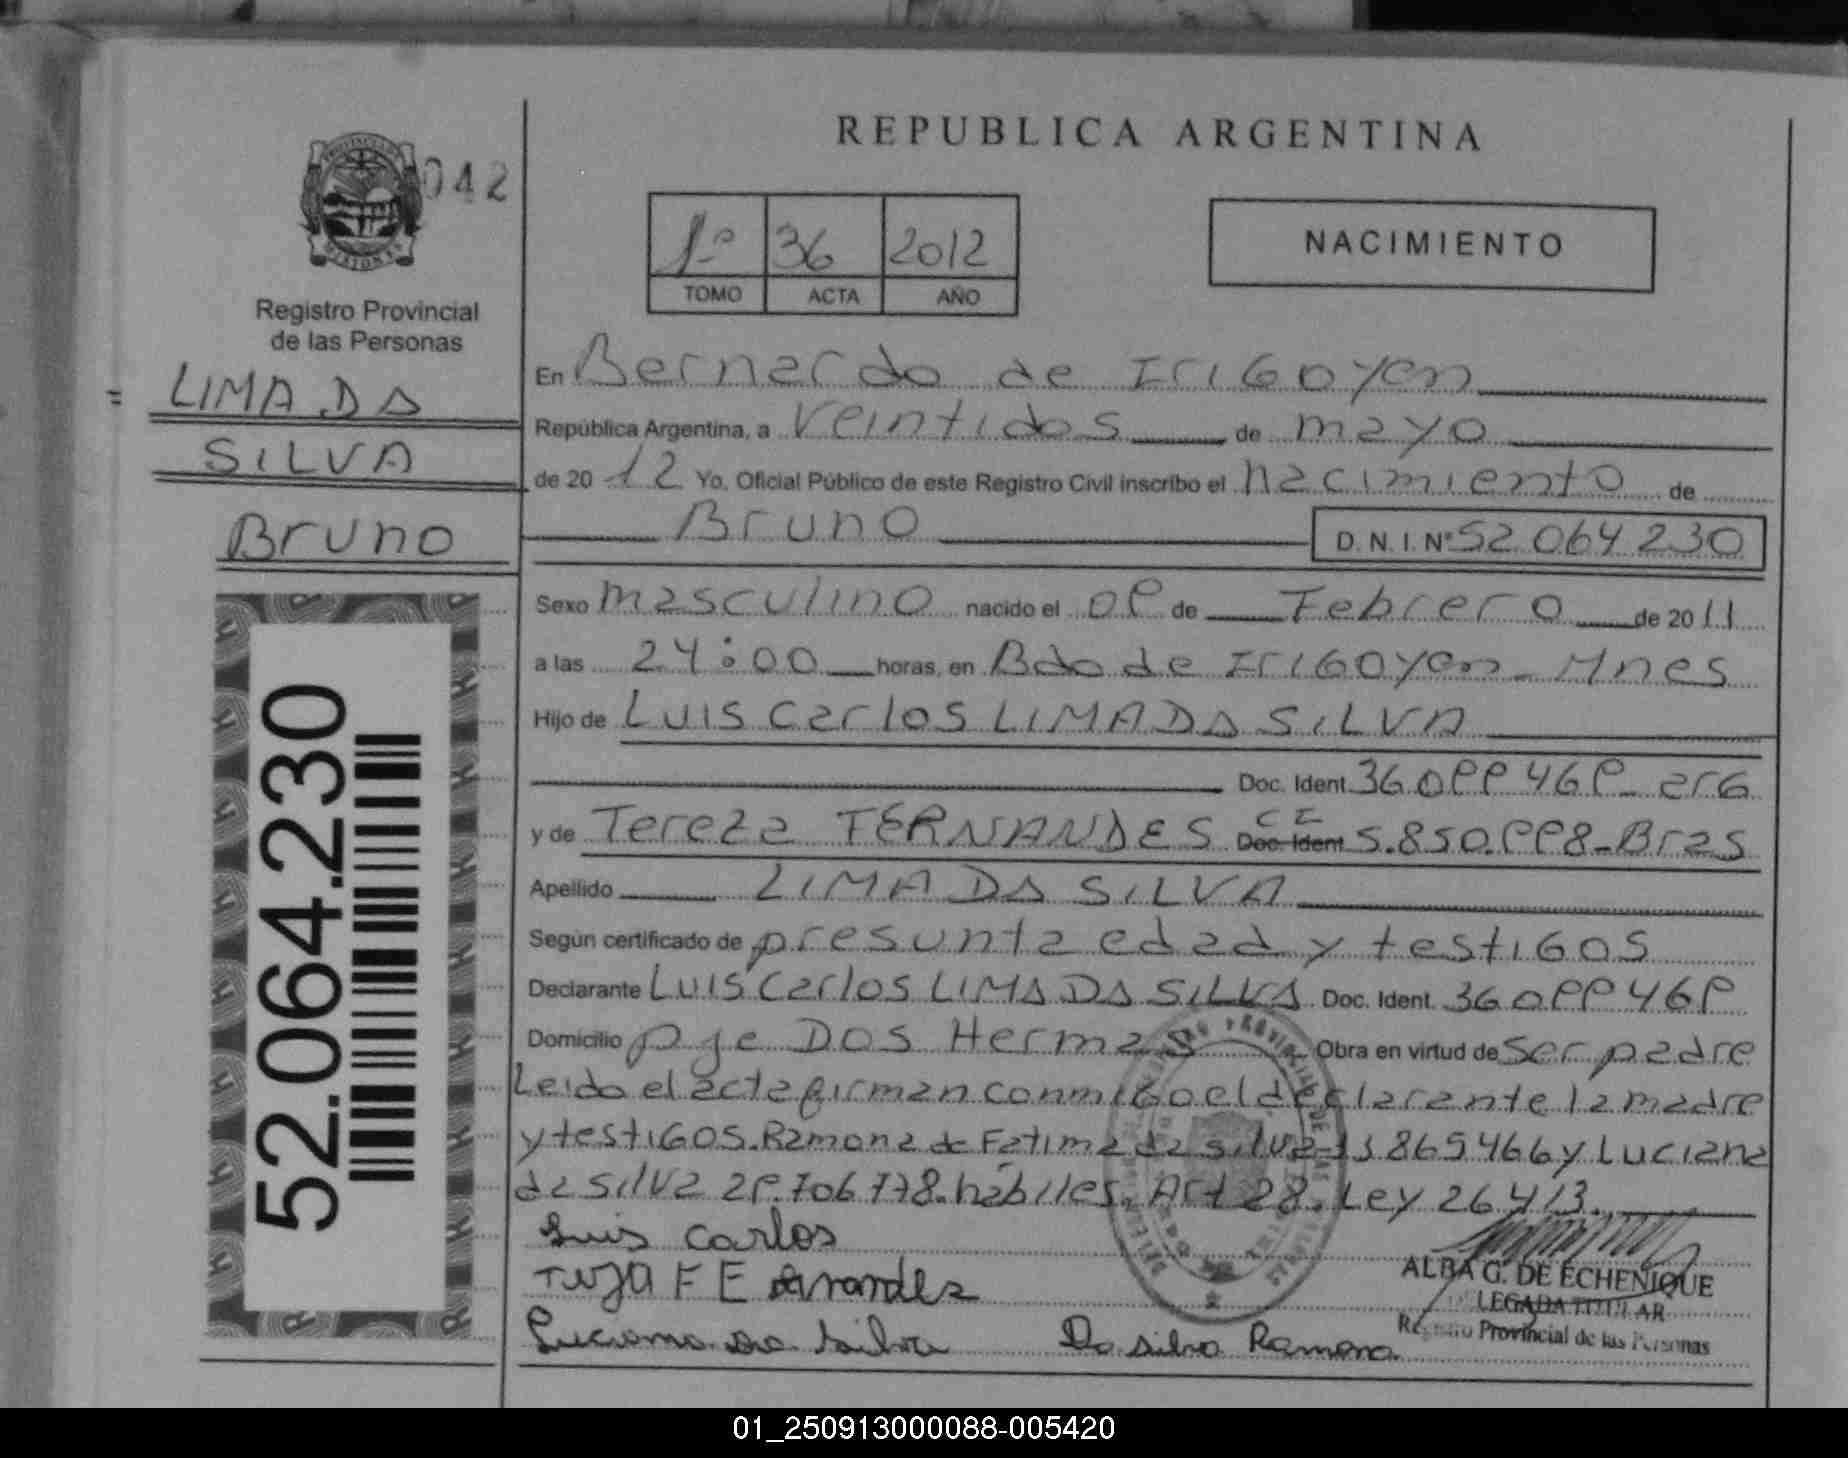 042
REPUBLICA ARGENTINA
1º 36 2012
TOMO ACTA AÑO
NACIMIENTO
Registro Provincial
de las Personas
LIMA DA
SILVA
Bruno
52.064.230
En Bernardo de IriGoyen
República Argentina, a veintidos de mayo
de 2012 Yo, Oficial Público de este Registro Civil inscribo el nacimiento de
Bruno D.N.I. Nº 52 064 230
Sexo masculino nacido el 09 de Febrero de 2011
a las 24:00 horas, en Bdo de IriGoyen - Mnes
Hijo de Luis Carlos LIMA DA SILVA
Doc. Ident. 36 099 469 - arG
y de Tereza FERNANDES CI Doc. Ident 5.850.998 - Bras
Apellido LIMA DA SILVA
Según certificado de presunta edad y testiGos
Declarante Luis Carlos LIMA DA SILVA Doc. Ident. 36 099 469
Domicilio pje Dos Hermanas Obra en virtud de ser padre
Leido el acta firman conmiGo el declarante la madre
y testiGos. Ramona de Fatima da silva 13 865 466 y Luciana
da silva 29.706 778. hábiles. Art 28. Ley 26.413.
Luis Carlos
Luciana da Silva Da silva Ramona
ALBA G. DE ECHENIQUE
DELEGADA TITULAR
Registro Provincial de las Personas
01_250913000088-005420